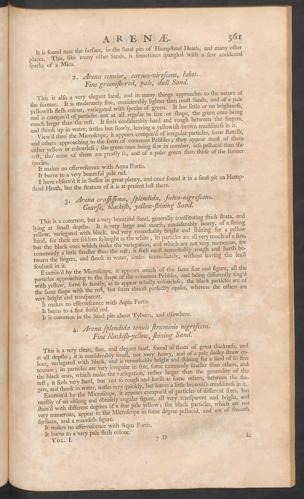 ARENÆ. 561
It is found near the surface, in the sand pit of Hampstead Heath, and many other
places. This, like many other Sands, is sometimes spangled with a few accidental
sparks of a Mica.
2. Arena tenuior, carneo-virescens, hebes.
Fine greenish-red, pale, dull Sand.
This is also a very elegant sand, and in many things approaches to the nature of
the former. It is moderately fine, considerably lighter than most sands, and of a pale
yellowish flesh colour, variegated with specks of green. It has little or no brightness,
and is composed of particles not at all regular in size or shape, the green ones being
much larger than the rest. It feels considerably hard and rough between the fingers,
and thrown up in water, settles but slowly, leaving a yellowish brown muddiness in it.
View'd thro' the Microscope, it appears composed of irregular particles, some
and others approaching to the form of common Pebbles; they appear most of them
either yellow or colourless; the green ones being few in number, less pellucid than the
rest, tho' none of them are greatly so, and of a paler green than those of the former
species.
It makes no effervescence with Aqua Fortis.
It burns to a very beautiful pale red.
I have observ'd it in Sussex in great plenty, and once found it in a sand pit on Hampstead
Heath, but the stratum of it is at present lost there.
3. Arena crassissima, splendida, fulvo-nigrescens.
Coarse, blackish, yellow-shining Sand.
This is a common, but a very beautiful Sand, generally constituting thick strata, and
lying at small depths. It is very large and coarse, considerably heavy, of a strong
yellow, variegated with black, and very remarkably bright and shining for a yellow
Sand, for these are seldom so bright as the white; its particles are all very much of a size,
but the black ones which make the variegation, and which are not very numerous, are
commonly a little smaller than the rest; it feels most remarkably rough and harsh between
the fingers, and thrown in water, settles immediately, without leaving the least
foulness in it.
Examin'd by the Microscope, it appears much of the same size and figure, all the
particles approaching to the shape of the common Pebbles, and being differently ting'd
with yellow, some so faintly, as to appear wholly colourless; the black particles are of
the same shape with the rest, but seem almost perfectly opake, whereas the others are
very bright and transparent.
It makes no effervescence with Aqua Fortis.
It burns to a fine florid red.
It is common in the Sand pits about Tyburn, and elsewhere.
4. Arena splendida tenuis flavo nigrescens.
Fine blackish-yellow, shining Sand.
This is a very clean, fine, and elegant sand, found of strata of great thickness, and
at all depths; it is considerably small, not very heavy, and of a pale dusky straw colour,
variegated with black, and is remarkably bright and shining for a sand of its fine
texture; its particles are very irregular in size, some commonly smaller than others, and
the black ones, which make the variegation, rather larger than the generality of the
rest; it feels very hard, but not so rough and harsh as some others, between the fingers,
and thrown in water, settles very quickly, but leaves a little brownish muddiness in it.
Examin'd by the Microscope, it appears compos'd of particles of different sizes, but
mostly of an oblong and obtusely angular figure, all very transparent and bright, and
ting'd with different degrees of a fine pale yellow; the black particles, which are not
very numerous, appear to the Microscope in some degree pellucid, and are of smooth
surfaces, and a roundish figure.
It makes no effervescence with Aqua Fortis.
It burns to a very pale flesh colour.
VOL. I. 7 D It